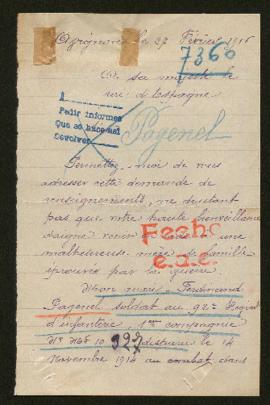 le 27 Février 1916
7360
A sa majesté le
roi d'Espagne
A
Pedir informes
Que se busque
Devolver
Pagenel
Permettez-moi de vous
adresser cette demande de
renseignements, ne doutant
pas que votre haute bienveillance
daigne venir
malheureuse mère de famille
éprouvée par la guerre.
Fecho
e.d.e.
Mon mari, Ferdinand
Pagenel soldat au 92e Régiment
d'infanterie, 1ère compagnie
disparu le 14
Novembre 1914 au combat dans